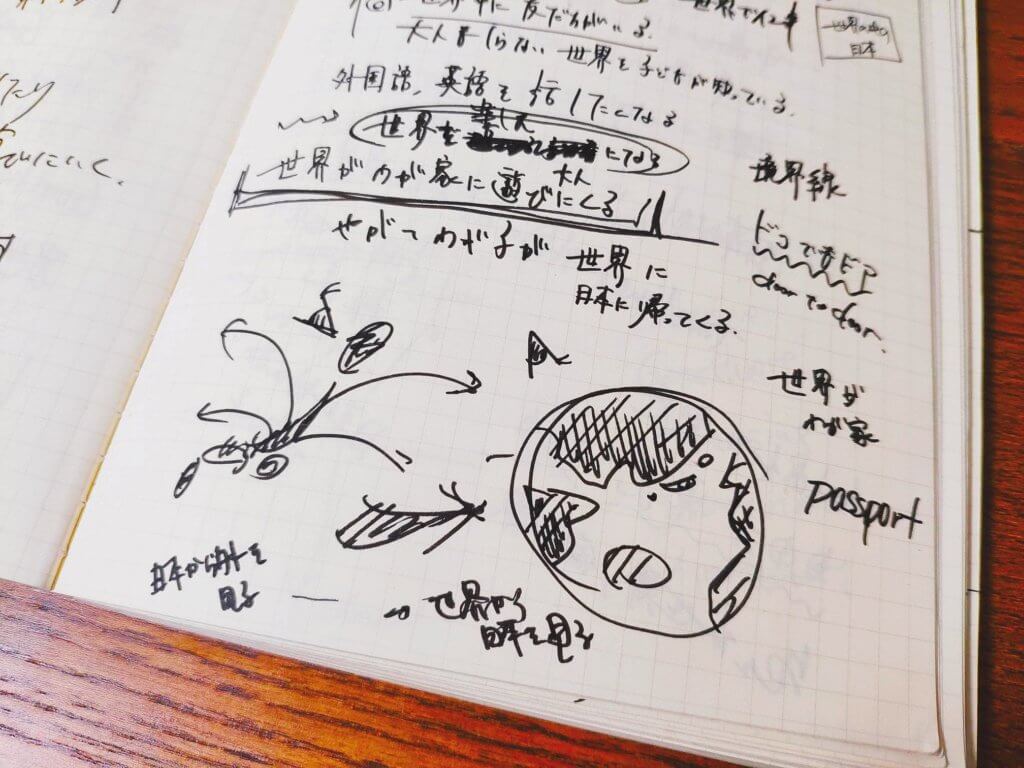 世界中に友だちがいる。
世界の中の
日本
大人もしらない世界を子どもが知っている。
外国語、英語を話したくなる
世界を
になる
大人
世界がわが家に遊びにくる
やがてわが子が世界に
日本に帰ってくる。
境界線
ドコでもドア
door to door.
世界が
わが家
passport
日本から外を
見る
→世界から
日本を見る